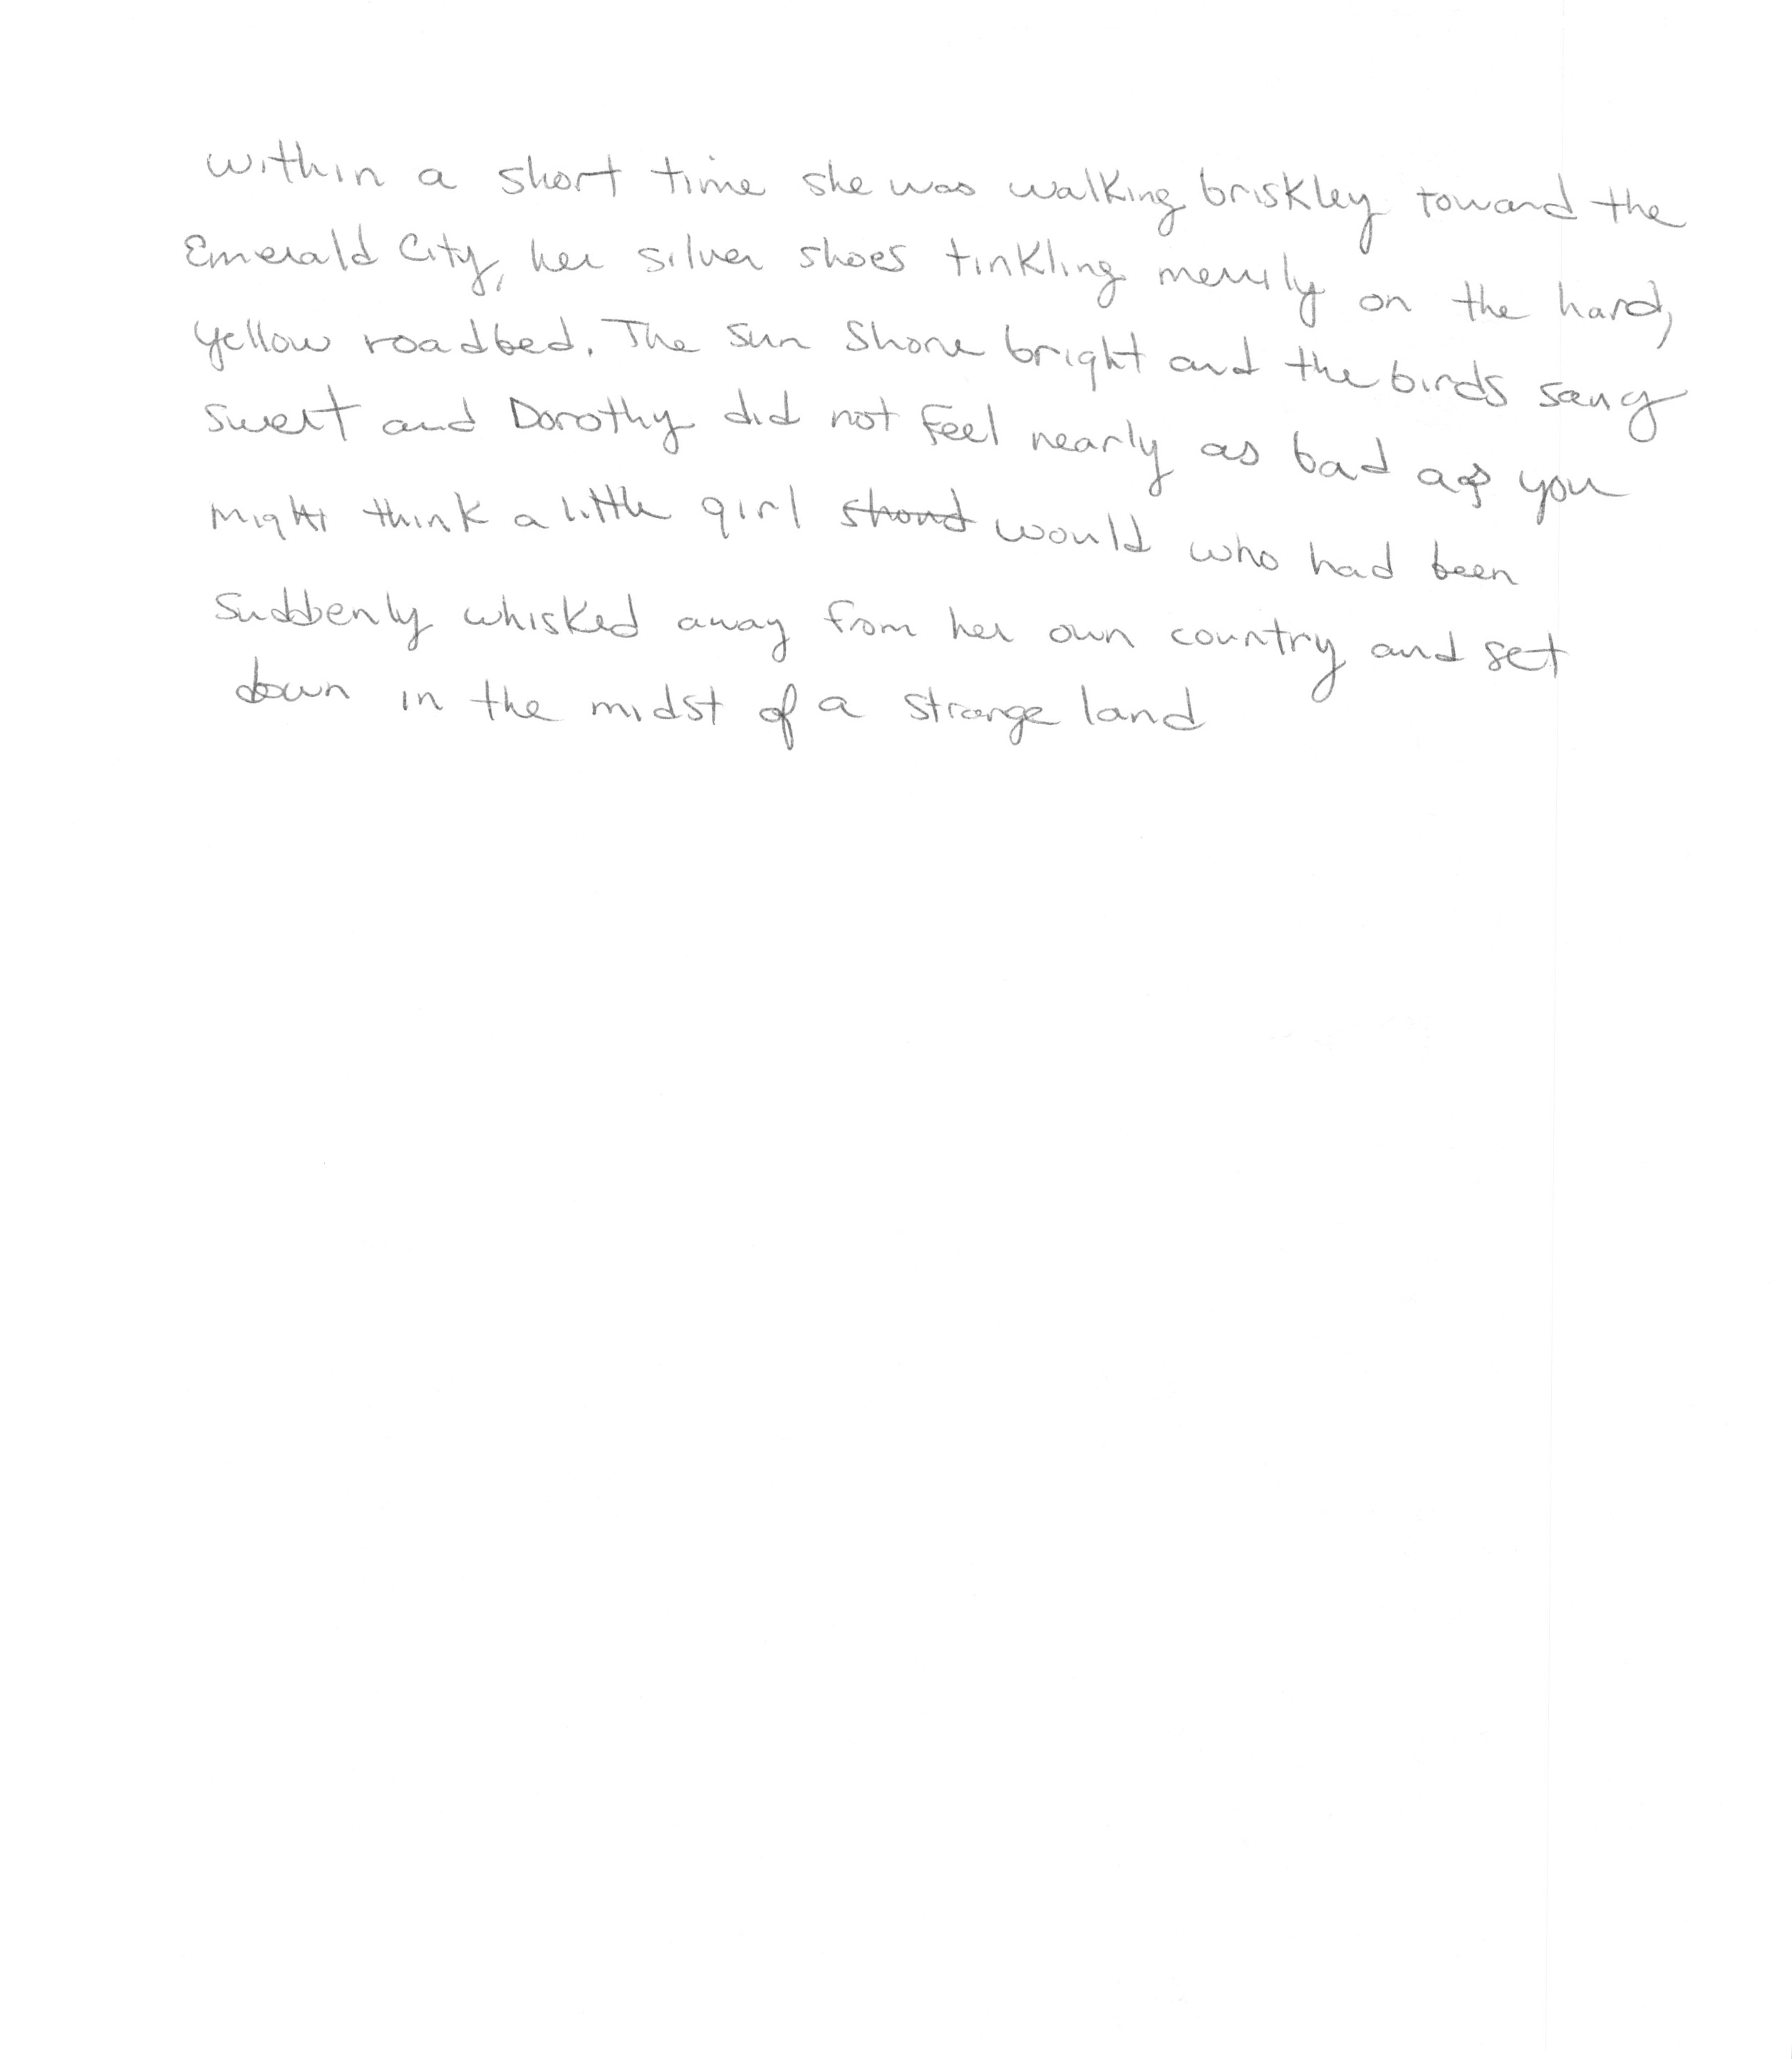 within a short time she was walking briskley toward the
Emerald City, her silver shoes tinkling merrily on the hard,
yellow roadbed. The sun shone bright and the birds sang
sweet and Dorothy did not feel nearly as bad as you
might think a little girl would who had been
suddenly whisked away from her own country and set
down in the midst of a strange land